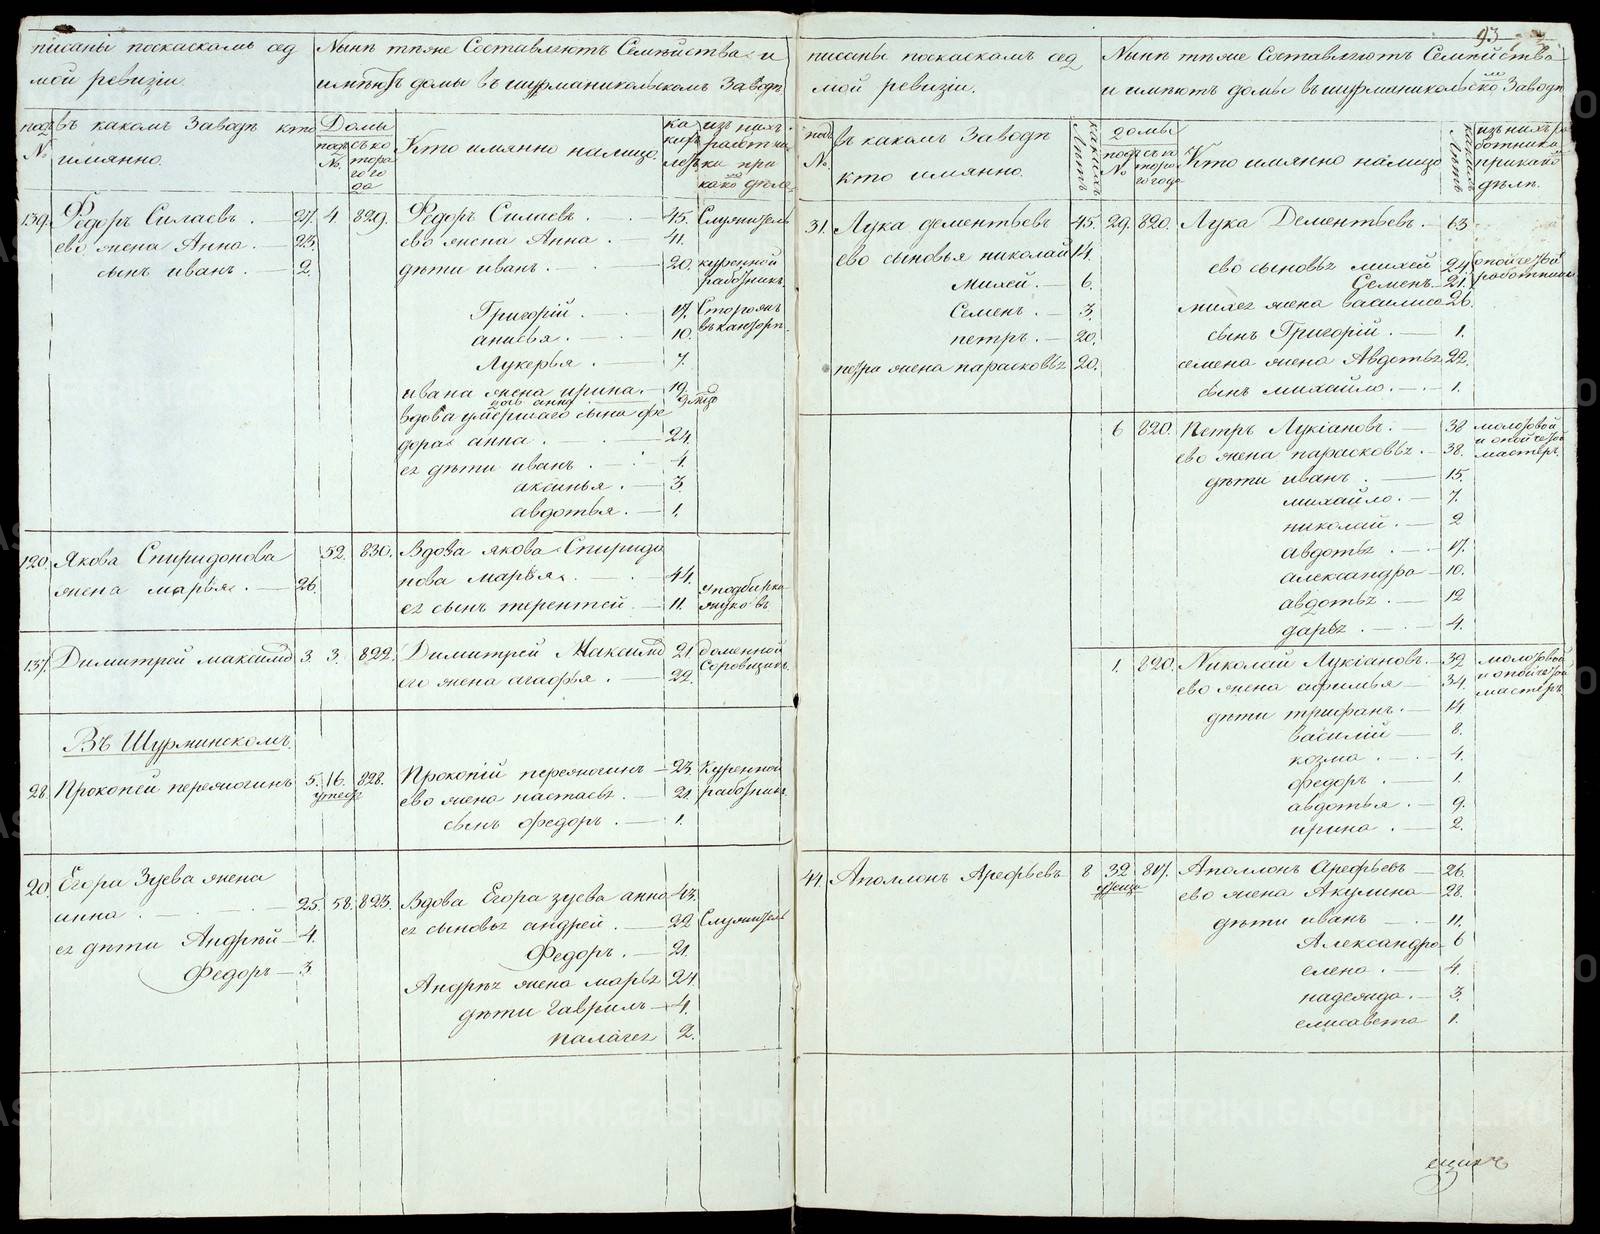 писаны посказкамъ сед
мой ревизіи.
Нынѣ тѣже Составляютъ Семейства и
имѣютъ домы въ шурманикольскомъ Заводѣ
подъ №
въ какомъ Заводѣ кто
имянно.
Домы
подъ №.
съ ко
тора
го го
да
Кто имянно налицо.
ка
кихъ
летъ
изъ нихъ
работни
ки при
како дѣле
139. Федоръ Силаевъ. 27. 4 829. Федоръ Силаевъ. 45. Служитель
ево жена Анна. 23. ево жена Анна. 41.
сынъ иванъ. 2. дѣти иванъ. 20. куренной
работникъ.
Григорій. 17. Сторожъ
анисья. 10. въ конторѣ.
Лукерья. 7.
ивана жена ирина. 19.
вдова умершаго сына фе
дора анна. 24.
ея дѣти иванъ. 4.
аксинья. 3.
авдотья. 1.
120. Якова Спиридонова 52. 830. Вдова якова Спиридо
жена марья. 26. нова марья. 44.
ея сынъ терентей. 11. уподбирки
жуковъ
137. Димитрей максимо 3. 3. 822. Димитрей Максимо 21 доменной
его жена агафья. 22. Соровщикъ.
Въ Шурминскомъ.
28. Прокопей пережогинъ 5. 16. 828. Прокопій пережогинъ 23. Куренной
ево жена настасья. 21. работникъ
сынъ федоръ. 1.
20. Егора Зуева жена
анна. 25. 58. 823. Вдова Егора зуева анна 43.
ея дѣти Андрѣй 4. ея сыновья андрей. 22 Служитель
Федоръ 3 Федоръ. 21.
Андрѣя жена марья 24
дѣти Гаврилъ 4.
палагея 2.
93
писаны посказкамъ сед
мой ревизіи.
Нынѣ тѣже Составляютъ Семейства
и имѣютъ домы въ шурманикольско Заводѣ
подъ №.
въ какомъ Заводѣ
кто имянно.
какихъ
Лѣтъ
домы
подъ №
съ ко
торо
го года
Кто имянно налицо
какихъ
Лѣтъ
изъ нихъ ра
ботники
при како
дѣлѣ.
31. Лука дементьевъ 45. 29. 820. Лука Дементьевъ. 63
ево сыновья николай 14. ево сыновья михей 24. опойчетой
михей. 6. Семенъ. 21. работники
Семенъ. 3. михея жена василиса 26.
петръ. 20. сынъ Григорій. 1.
петра жена парасковья 20. семена жена Авдотья 22.
сынъ михайло. 1.
6 820. Петръ Лукіановъ. 38 молотовой
ево жена парасковья. 38. мастеръ.
дѣти иванъ. 15.
михайло. 7.
николай. 2
авдотья. 17.
александра 10.
авдотья. 12
дарья. 4.
1. 820. Николай Лукіановъ. 32 молотовой
ево жена афимья 34. мастеръ.
дѣти трифанъ. 14
василій 8.
козма. 4.
федоръ. 1.
авдотья. 9.
ирина. 2.
44. Аполлонъ Арефьевъ 8 32 817. Аполлонъ Арефьевъ 26.
ево жена Акулина 28.
дѣти иванъ 11.
Александра 6
елена. 4.
надежда. 3.
елисавета 1.